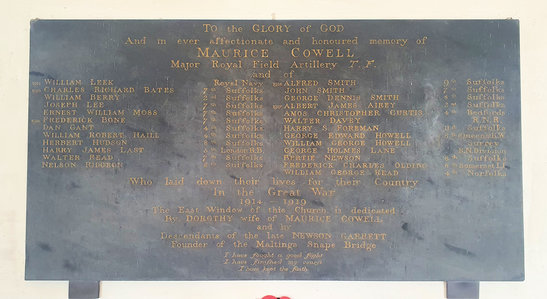 TO the GLORY of GOD
And in ever affectionate and honoured memory of
MAURICE COWELL
Major Royal Field Artillery T. F.
and of
WILLIAM LEEK Royal Navy
CHARLES RICHARD BATES Suffolks
WILLIAM BERRY Suffolks
JOSEPH LEE Suffolks
ERNEST WILLIAM MOSS Suffolks
FREDERICK BONE Suffolks
DAN GANT Suffolks
WILLIAM ROBERT HAILL Suffolks
HERBERT HUDSON Suffolks
HARRY JAMES LAST
WALTER READ Suffolks
NELSON RIDGEON Suffolks
ALFRED SMITH 9th Suffolks
JOHN SMITH Suffolks
GEORGE DENNIS SMITH Suffolks
ALBERT JAMES AIREY Suffolks
AMOS CHRISTOPHER CURTIS Bedfords
WALTER DAVEY R.N.R.
HARRY S. FOREMAN Suffolks
GEORGE EDWARD HOWELL
WILLIAM GEORGE HOWELL Surrey
GEORGE HOLMES LANE R.N. Division
BERTIE NEWSON Suffolks
FREDERICK CHARLES OLDING
WILLIAM GEORGE READ 4th Norfolks
Who laid down their lives for their Country
In the Great War
1914 1919
The East Window of this Church is dedicated
By DOROTHY wife of MAURICE COWELL
and by
Descendants of the late NEWSON GARRETT
Founder of the Maltings Snape Bridge
I have fought a good fight
I have finished my course
I have kept the faith